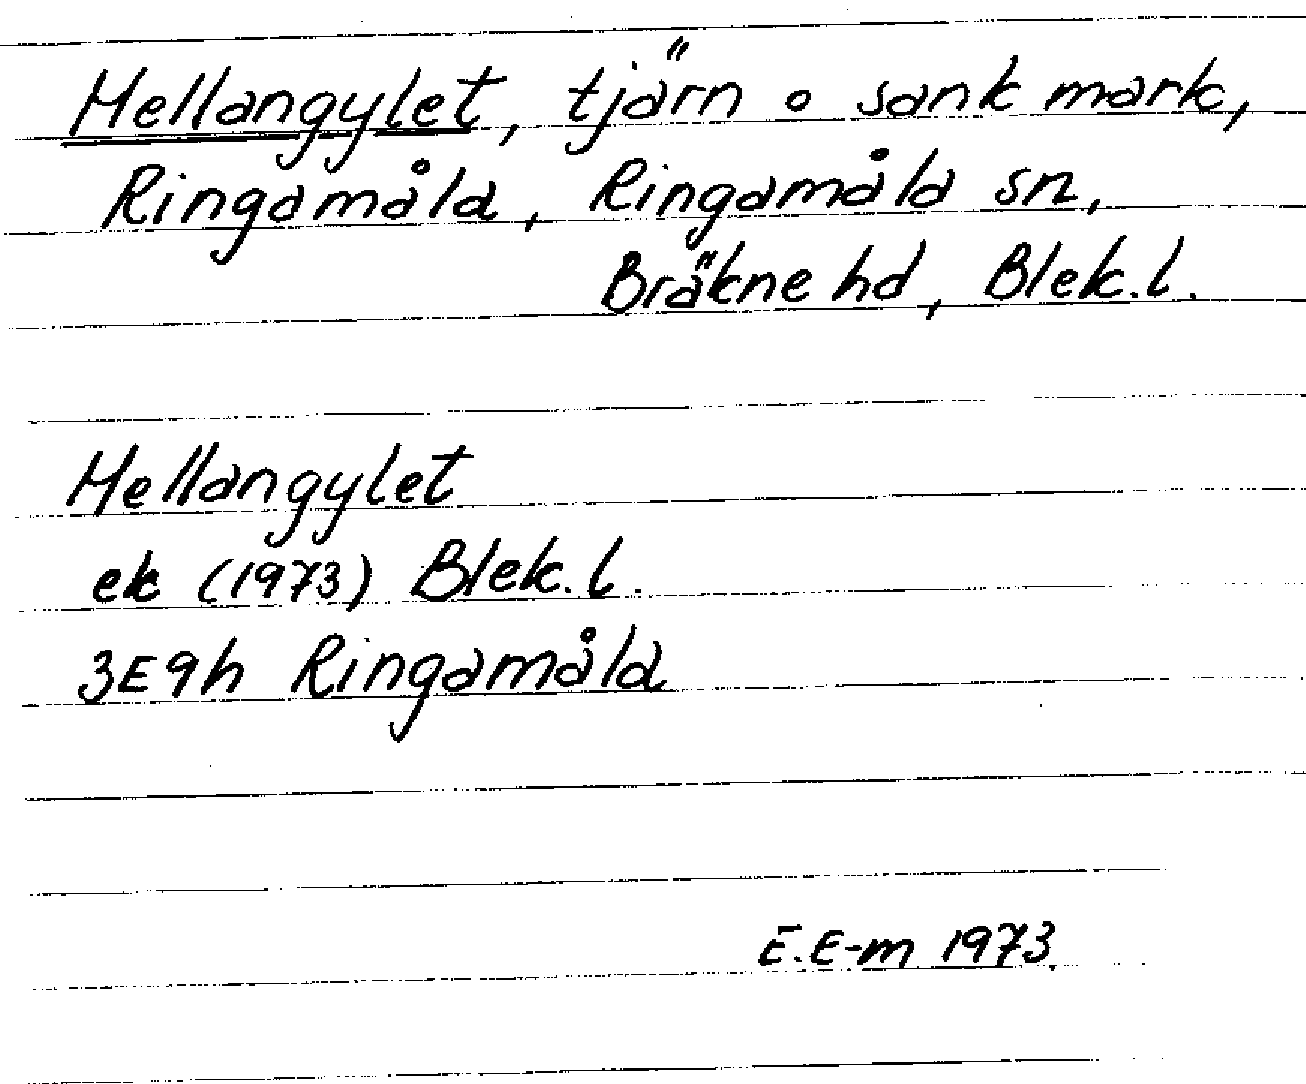 Mellangylet, tjärn o sank mark,
Ringamåla, Ringamåla sn,
Bräkne hd, Blek. l.
Mellangylet
ek (1973) Blek. l.
3E9h Ringamåla
E.E-m 1973